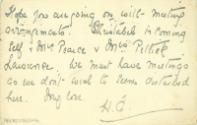 Hope you are going on with meeting
arrangements. Christabel is coming
self & Mrs Pearce & Mrs Pethick
Lawrence. We must have meetings
as we don't wish to seem disturbed
here. My love